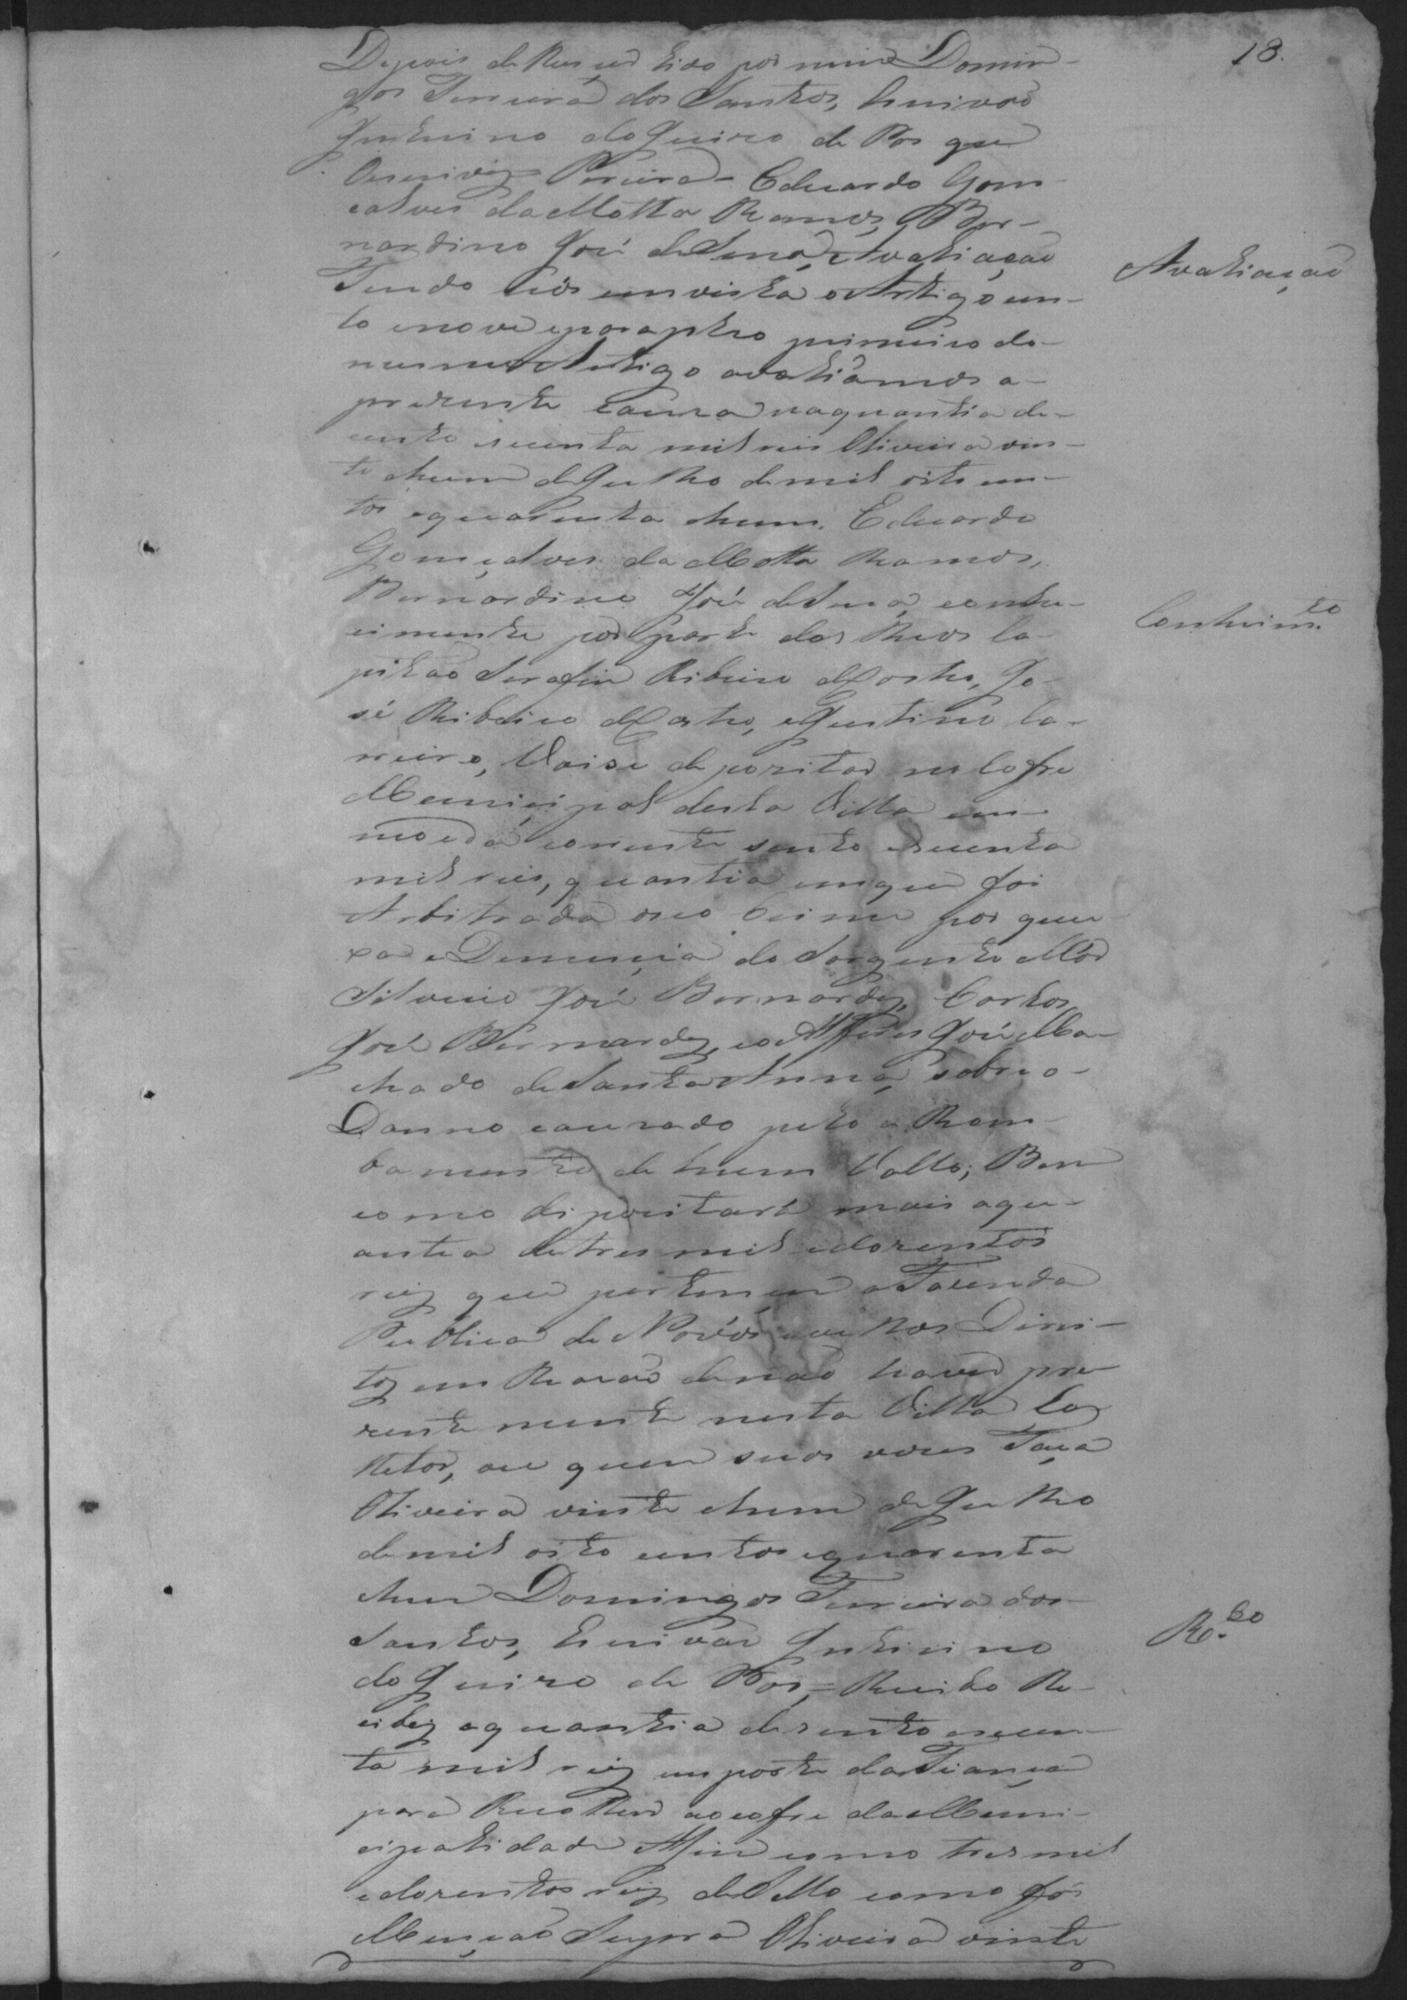 18.
Depois de Rescrevido por mim Domin-
gos Ferreira dos Santos, Escrivão
Interino do Juizo de Pas que
Oescrevi= Pereira= Eduardo Gon-
calves da Motta Ramos, Ber-
nardino José de Sena, Avaliaçaõ
Avaliaçaõ
Tendo nós em vista o Artigo cen-
to enove eparaptro primeiro do-
mesmo Artigo avaliâmos a-
prezente cauza naquantia de-
cento secenta mil reis Oliveira vin-
te ehum de Julho de mil oito cen-
tos equarenta ehum. Eduardo
Gonçalves da Motta Ramos,
Bernardino José de Sena, conhe-
Conhecim.to
cimento por parte dos Reos Ca-
pitaõ Serafim Ribeiro de Castro, Jo-
sé Ribeiro de Castro, e Justino Ca-
rneiro, Vaise depozitar no Cofre
Municipal desta Villa em
moeda corrente sento esecenta
mil reis, quantia em que foi
Arbitrada oseo Crime por quei-
xa e Denuncia do Sargento Mór
Silverio José Bernardez, Carlos
José Bernardez, eo Alferes José Ma-
chado de Santa Anna, sobre o-
Danno cauzado pelo a Rom-
bamento de hum Vallo; Bem
como depozitará mais aqu-
antia de tres mil edozentos
reiz que pertencem a Fazenda
Publica de Novós e velhos Direi-
toz em Razaõ denaõ haver pre-
zente mente nesta Villa Co-
lletor, ou quem suas vezes Faça
Oliveira vinte ehum de Julho
de mil oito centos equarenta
ehum Domingos Ferreira dos
Santos, Escrivaõ Interino
R.bo
do Juizo de Pas,= Recibo Re-
cibez aquantia de sento esecen-
ta mil reiz emporte da Fiança
para Recolher ao cofre da Muni-
cipalidade Assim como tres mil
edozentos reiz de Sello como fas
Mençaõ Supra Oliveira vinte